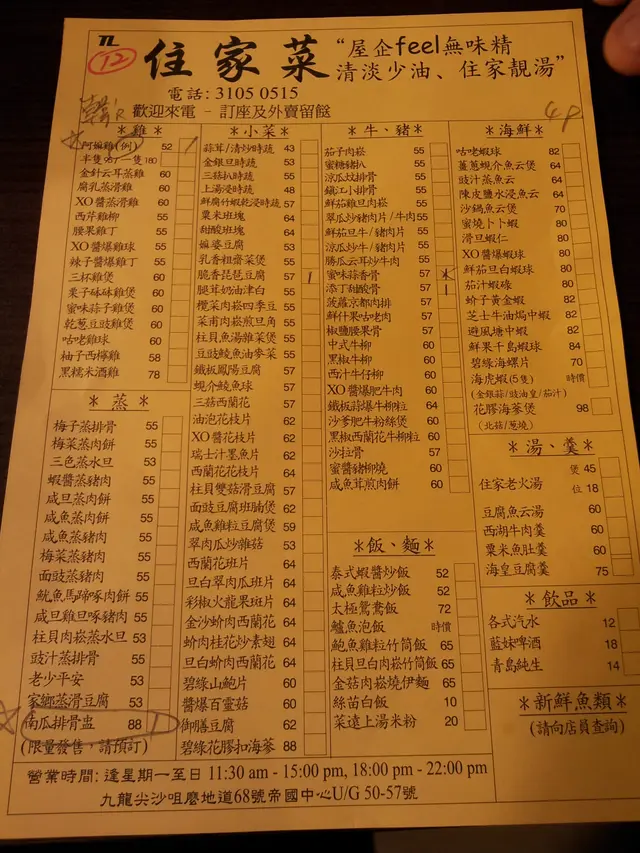 12
住家菜
“屋企feel無味精
清淡少油、住家靚湯”
電話: 3105 0515
歡迎來電 - 訂座及外賣留餸
4P
*雞*
阿嫲雞(例) 52 1
半隻90/一隻180
金針云耳蒸雞 60
腐乳蒸滑雞 60
XO醬蒸滑雞 60
西芹雞柳 60
腰果雞丁 55
XO醬爆雞球 60
辣子醬爆雞丁 55
三杯雞煲 60
栗子砵砵雞煲 60
蜜味蒜子雞煲 60
乾葱豆豉雞煲 60
咕咾雞球 60
柚子西檸雞 58
黑糯米酒雞 78
*蒸*
梅子蒸排骨 55
梅菜蒸肉餅 55
三色蒸水旦 53
蝦醬蒸豬肉 55
咸旦蒸肉餅 55
咸魚蒸肉餅 55
咸魚蒸豬肉 55
梅菜蒸豬肉 55
面豉蒸豬肉 55
魷魚馬蹄啄肉餅 55
咸旦雞旦啄豬肉 55
柱貝肉崧蒸水旦 53
豉汁蒸排骨 55
老少平安 53
家鄉蒸滑豆腐 53
南瓜排骨盅 88 1
(限量發售，請預訂)
*小菜*
蒜茸/清炒時蔬 43
金銀旦時蔬 53
三菇扒時蔬 55
上湯浸時蔬 48
鮮腐竹蝦乾浸時蔬 57
粟米班塊 64
甜酸班塊 64
嫲婆豆腐 53
乳香粗齋菜煲 55
脆香琵琶豆腐 57 1
腿茸奶油津白 55
欖菜肉崧四季豆 55
菜甫肉崧煎旦角 55
柱貝魚湯雜菜煲 55
豆豉鯪魚油麥菜 55
鐵板鳳陽豆腐 57
蜆介鯪魚球 57
三菇西蘭花 57
油泡花枝片 62
XO醬花枝片 62
瑞士汁墨魚片 62
西蘭花花枝片 64
柱貝雙菇滑豆腐 57
面豉豆腐班腩煲 62
咸魚雞粒豆腐煲 59
翠肉瓜炒雜菇 53
西蘭花班片 64
旦白翠肉瓜班片 64
彩椒火龍果班片 64
金沙蚧肉西蘭花 64
蚧肉桂花炒素翅 64
旦白蚧肉西蘭花 64
碧綠山鮑片 60
醬爆百靈菇 60
御膳豆腐 62
碧綠花膠扣海參 88
*牛、豬*
茄子肉崧 55
蜜糖豬扒 55
涼瓜炆排骨 55
鐵江小排骨 55
鮮茄雞旦肉崧 55
翠瓜炒豬肉片/牛肉 55
鮮茄旦牛/豬肉片 55
涼瓜炒牛/豬肉片 55
勝瓜云耳炒牛肉 55
蜜味蒜香骨 57
添丁甜酸骨 57 1
菠蘿京都肉排 57
鮮什果咕咾肉 57
椒鹽腰果骨 57
中式牛柳 60
黑椒牛柳 60
西汁牛仔柳 60
XO醬爆肥牛肉 60
鐵板蒜爆牛柳粒 64
沙爹肥牛粉絲煲 60
黑椒西蘭花牛柳粒 60
沙拉骨 57
蜜醬豬柳燒 60
咸魚茸煎肉餅 60
*飯、麵*
泰式蝦醬炒飯 52
咸魚雞粒炒飯 52
太極鴛鴦飯 72
鱸魚泡飯 時價
鮑魚雞粒竹筒飯 65
柱貝旦白肉崧竹筒飯 65
金菇肉崧燒伊麵 65
絲苗白飯 10
菜遠上湯米粉 20
*海鮮*
咕咾蝦球 82
薑蔥蜆介魚云煲 60
豉汁蒸魚云 60
陳皮鹽水浸魚云 64
沙鍋魚云煲 70
蜜燒卜卜蜆 80
滑旦蝦仁 80
XO醬爆蝦球 80
鮮茄旦白蝦球 80
茄汁蝦碌 80
蚧子黃金蝦 82
芝士牛油焗中蝦 82
避風塘中蝦 82
鮮果千島蝦球 84
碧綠海螺片 70
海虎蝦(5隻) 時價
(金銀蒜/豉油皇/茄汁)
花膠海參煲 98
(北菇/葱燒)
*湯、羹*
煲 45
住家老火湯 位 18
豆腐魚云湯 60
西湖牛肉羹 60
粟米魚肚羹 60
海皇豆腐羹 75
*飲品*
各式汽水 12
藍妹啤酒 18
青島純生 14
*新鮮魚類*
(請向店員查詢)
營業時間: 逢星期一至日 11:30 am - 15:00 pm, 18:00 pm - 22:00 pm
九龍尖沙咀麼地道68號帝國中心U/G 50-57號